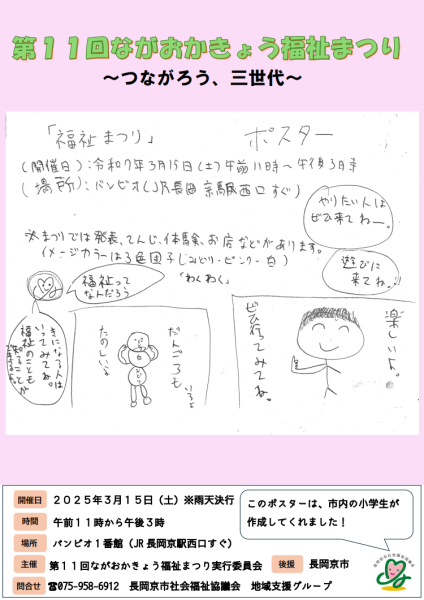 第11回ながおかきょう福祉まつり
～つながろう、三世代～
「福祉まつり」 ポスター
(開催日):令和7年3月15日(土)午前11時～午後3時
(場所):バンビオ(JR長岡京駅西口すぐ)
やりたい人は
ぜひ来てねー。
※まつりでは発表、てんじ、体験、お店などがあります。
(イメージカラーは3色団子(みどり・ピンク・白)
遊びに
来てね!!
福祉って
なんだろう
「わくわく」
きになる人は
いってみてね。
福祉のことも
知ることが
できるよ
だんごろも
いるよ
たのしいよ
楽しいよ。
ぜひ行ってみてね。
開催日 2025年3月15日(土)※雨天決行
時間 午前11時から午後3時
場所 バンビオ1番館(JR長岡京駅西口すぐ)
主催 第11回ながおかきょう福祉まつり実行委員会 後援 長岡京市
問合せ ☎075-958-6912 長岡京市社会福祉協議会 地域支援グループ
このポスターは、市内の小学生が
作成してくれました!